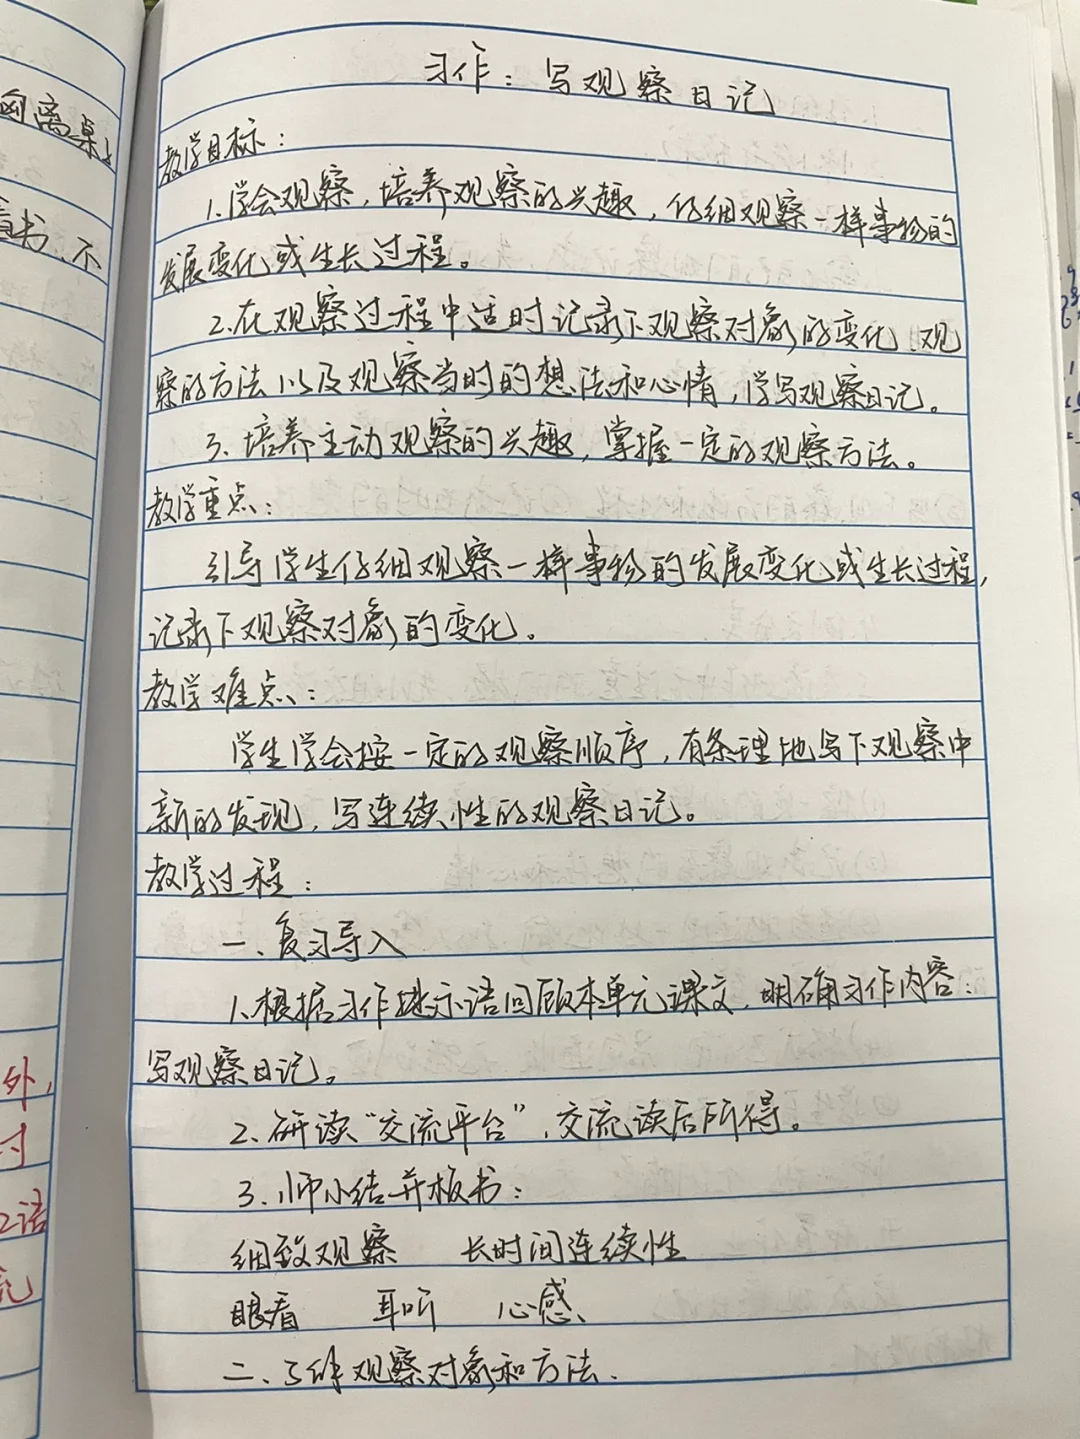 习作：写观察日记
教学目标：
1.学会观察，培养观察的兴趣，仔细观察一样事物的
发展变化或生长过程。
2.在观察过程中适时记录下观察对象的变化、观
察的方法以及观察当时的想法和心情，学写观察日记。
3.培养主动观察的兴趣，掌握一定的观察方法。
教学重点：
引导学生仔细观察一样事物的发展变化或生长过程，
记录下观察对象的变化。
教学难点：
学生学会按一定的观察顺序，有条理地写下观察中
新的发现，写连续性的观察日记。
教学过程：
一、复习导入
1.根据习作提示语回顾本单元课文，明确习作内容：
写观察日记。
2.研读“交流平台”，交流读后所得。
3.师小结并板书：
细致观察 长时间连续性
眼看 耳听 心感
二、了解观察对象和方法.
离桌
书、不
外,
讨
语